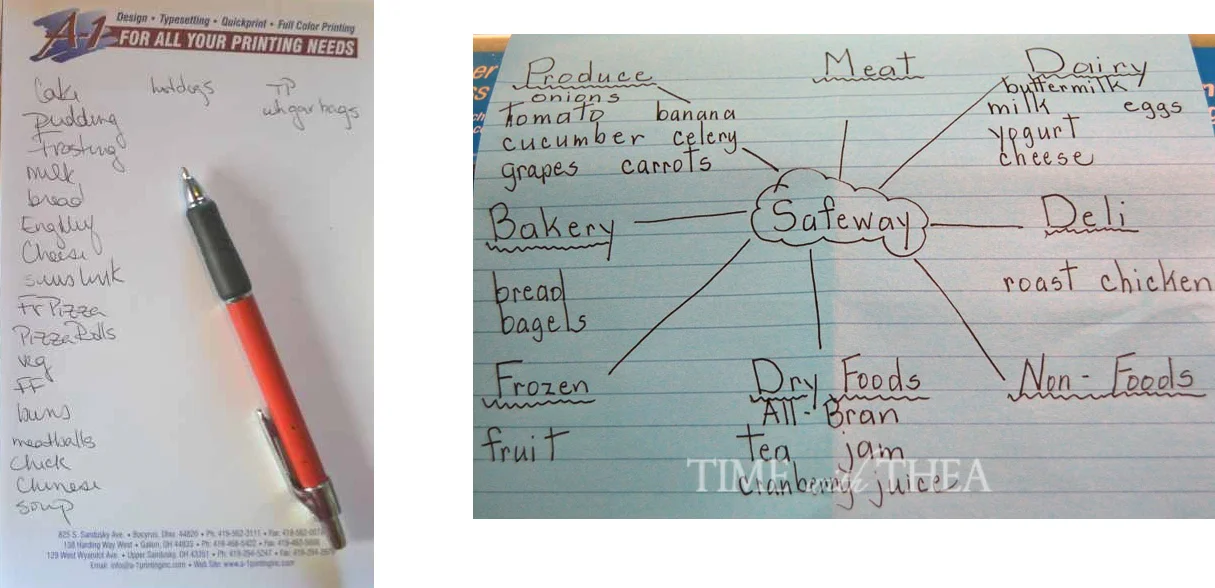 A-1
Design • Typesetting • Quickprint • Full Color Printing
FOR ALL YOUR PRINTING NEEDS
Cake
Pudding
Frosting
milk
bread
Cheese
Fr Pizza
Pizza Rolls
veg
FF
buns
meatballs
Chick
Chinese
soup
hotdogs
TP
bags
825 S. Sandusky Ave. • Bucyrus, Ohio 44820 • Ph: 419-562-3111 • Fax:
138 Harding Way West • Galion, OH 44833 • Ph: 419-468-5422 • Fax:
129 West Wyandot Ave. • Upper Sandusky, OH 43351 • Ph: 419-294-5247 • Fax:
Email: info@a-1printinginc.com • Web Site: www.a-1printinginc.com
Produce
onions
tomato banana
cucumber celery
grapes carrots
Meat
Dairy
buttermilk
milk eggs
yogurt
cheese
Bakery
bread
bagels
Safeway
Deli
roast chicken
Frozen
fruit
Dry Foods
All-Bran
tea jam
cranberry juice
Non-Foods
TIME with THEA